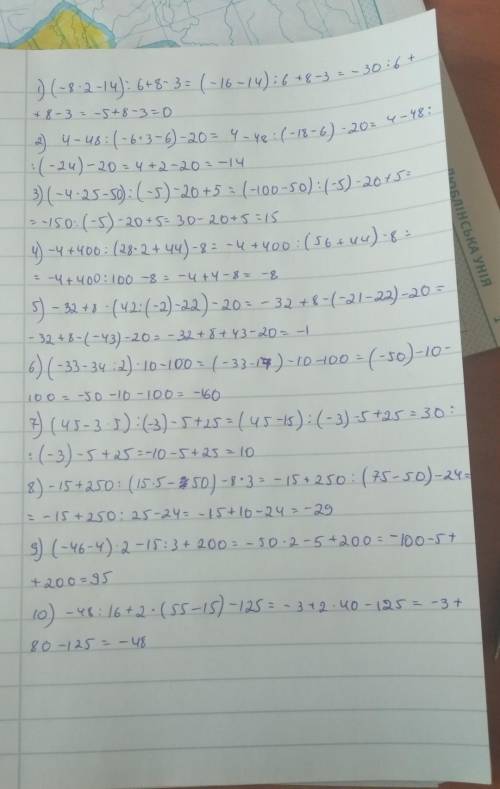 1) (-8·2-14):6+8-3=(-16-14):6+8-3=-30:6+
+8-3=-5+8-3=0
2) 4-48:(-6·3-6)-20=4-48:(-18-6)-20=4-48:
:(-24)-20=4+2-20=-14
3)(-4·25-50):(-5)-20+5=(-100-50):(-5)-20+5=
=-150:(-5)-20+5=30-20+5=15
4)-4+400:(28·2+44)-8=-4+400:(56+44)-8=
=-4+400:100-8=-4+4-8=-8
5)-32+8-(42:(-2)-22)-20=-32+8-(-21-22)-20=
-32+8-(-43)-20=-32+8+43-20=-1
6)(-33-34:2)-10-100=(-33-17)-10-100=(-50)-10-
100=-50-10-100=-160
7)(45-3·5):(-3)-5+25=(45-15):(-3)-5+25=30:
:(-3)-5+25=-10-5+25=10
8)-15+250:(15·5-50)-8·3=-15+250:(75-50)-24=
=-15+250:25-24=-15+10-24=-29
9)(-46-4)·2-15:3+200=-50·2-5+200=-100-5+
+200=95
10)-48:16+2·(55-15)-125=-3+2·40-125=-3+
80-125=-48
ЛЮБЛІНСЬКА УНІЯ